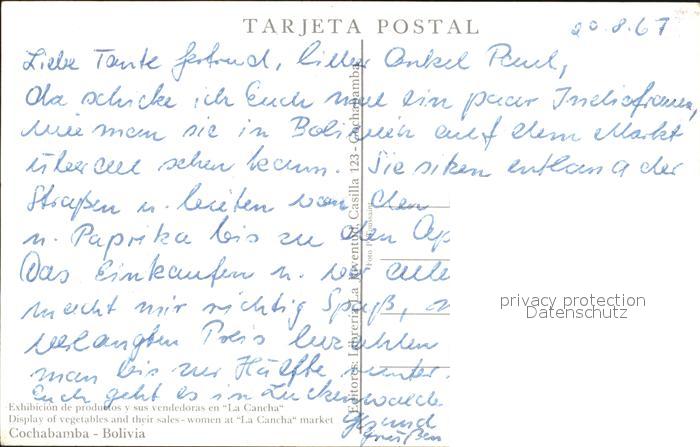 TARJETA POSTAL
20.8.67
Liebe Tante Gertrud, lieber Onkel Paul,
da schicke ich Euch mal ein paar Indiofrauen,
wie man sie in Bolivien auf dem Markt
überall sehen kann. Sie sitzen entlang der
Straßen u. bieten von den
u. Paprika bis zu den Ap
Das Einkaufen u.
macht mir richtig Spaß,
verlangten Preis bezahlen
man bis zur Hälfte runter.
Euch geht es in Luckenwalde
Gesund
grüßen
Exhibición de productos y sus vendedoras en "La Cancha"
Display of vegetables and their sales - women at "La Cancha" market
Cochabamba - Bolivia
Editores: Librería La Juventud, Casilla 123 - Cochabamba
Foto
privacy protection
Datenschutz